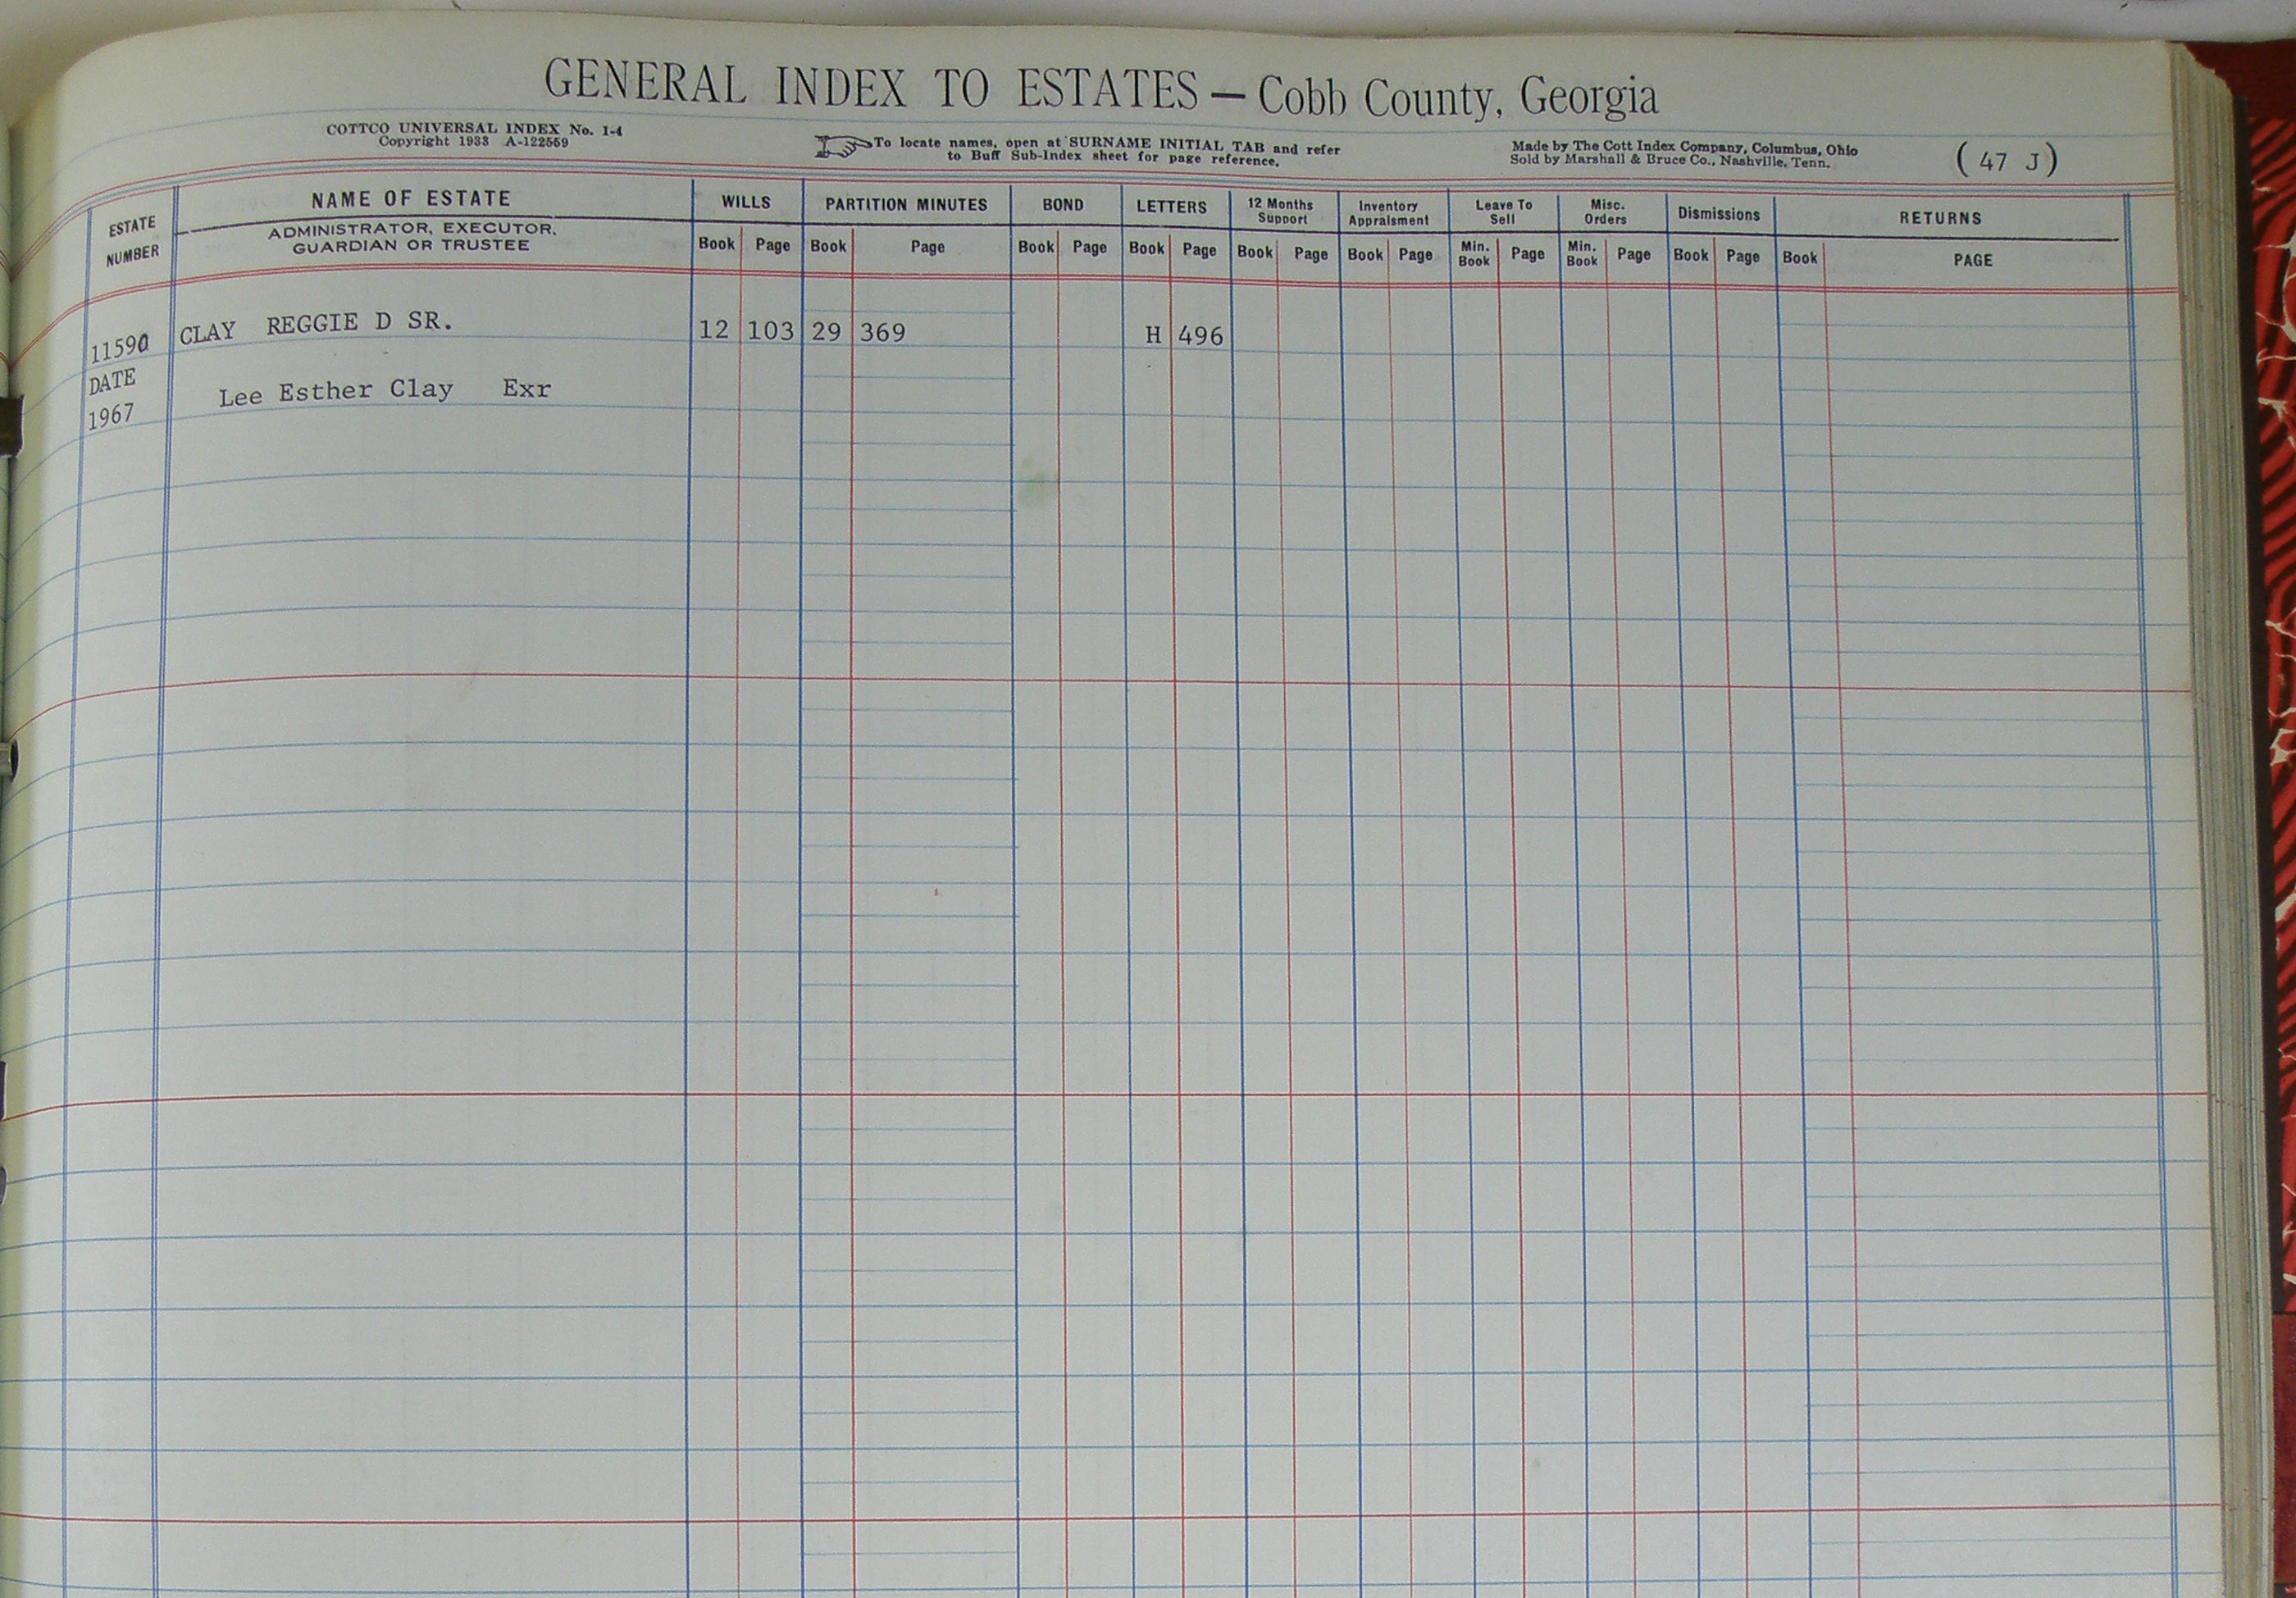 GENERAL INDEX TO ESTATES — Cobb County, Georgia
COTTCO UNIVERSAL INDEX No. 1-4
Copyright 1933 A-122559
To locate names, open at SURNAME INITIAL TAB and refer
to Buff Sub-Index sheet for page reference.
Made by The Cott Index Company, Columbus, Ohio
Sold by Marshall & Bruce Co., Nashville, Tenn.
( 47 J )
ESTATE
NUMBER
NAME OF ESTATE
ADMINISTRATOR, EXECUTOR,
GUARDIAN OR TRUSTEE
WILLS
Book Page
PARTITION MINUTES
Book Page
BOND
Book Page
LETTERS
Book Page
12 Months
Support
Book Page
Inventory
Appraisment
Book Page
Leave To
Sell
Min.
Book
Page
Misc.
Orders
Min.
Book
Page
Dismissions
Book Page
RETURNS
Book PAGE
11590 CLAY REGGIE D SR. 12 103 29 369 H 496
DATE
1967
Lee Esther Clay Exr